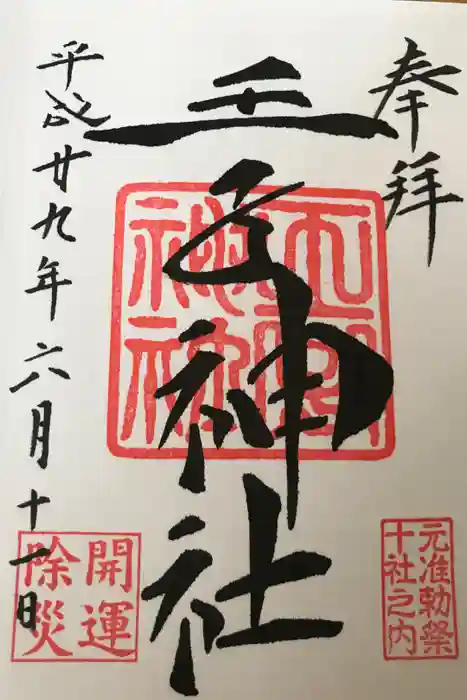 奉拝
王子神社
平成廿九年六月十一日
元准勅祭
十社之内
開運
除災